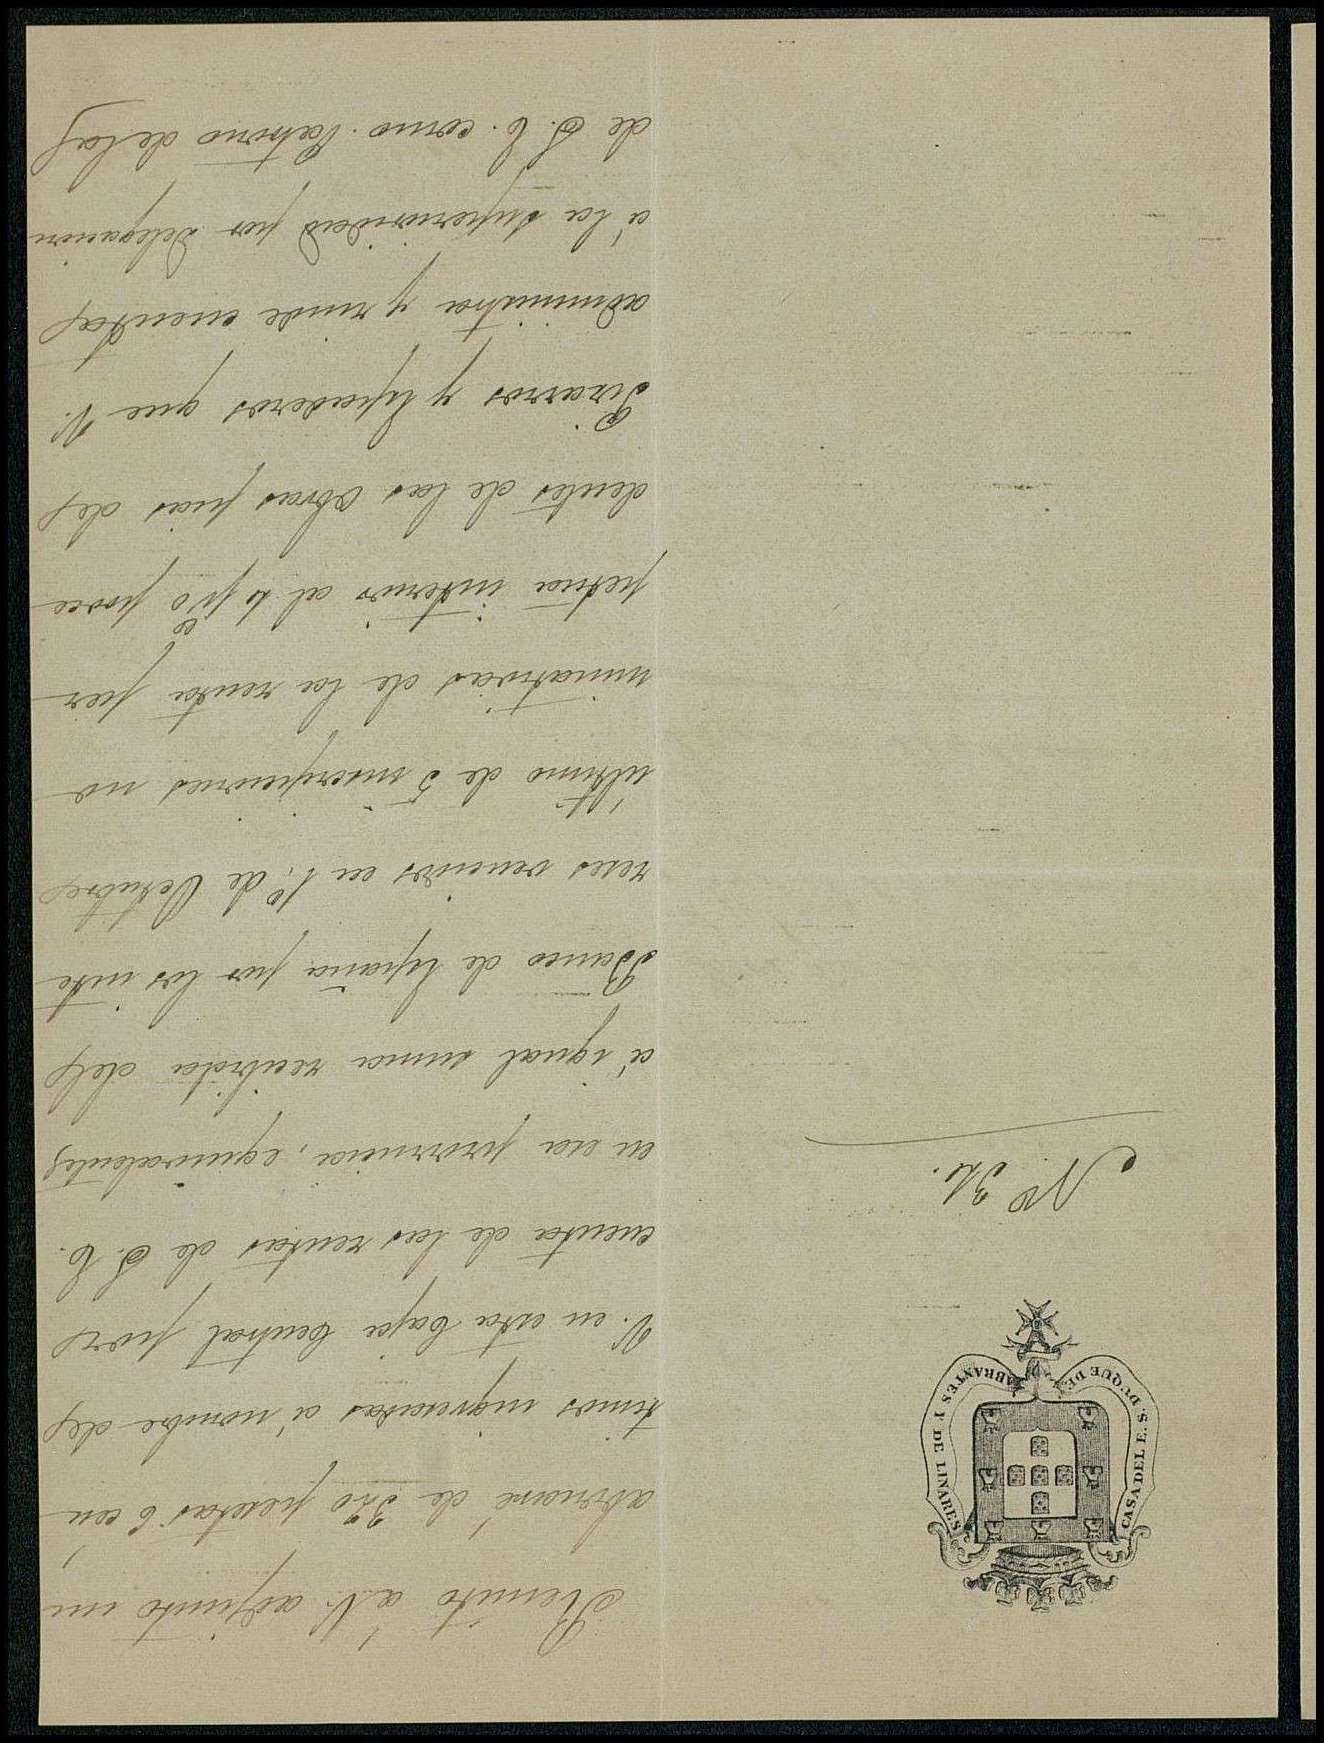 CASA DEL E. S. DUQUE DE ABRANTES Y DE LINARES
Nº 36.
Remito á V. adjunto un
abonaré de 370 pesetas 6 cén
timos ingresadas á nombre de
V. en esta Caja Central por
cuenta de las rentas de S. E.
en esa provincia, equivalentes
á igual suma recibida del
Banco de España por los inte
reses vencidos en 1.º de Octubre
último de 5 inscripciones no
minativas de la renta per
petua interior al 4 p% proce
dentes de las obras pias de
Pizarros y Espaderos que V.
administra y rinde cuentas
á la superioridad por delegacion
de S. E. como Patrono de las